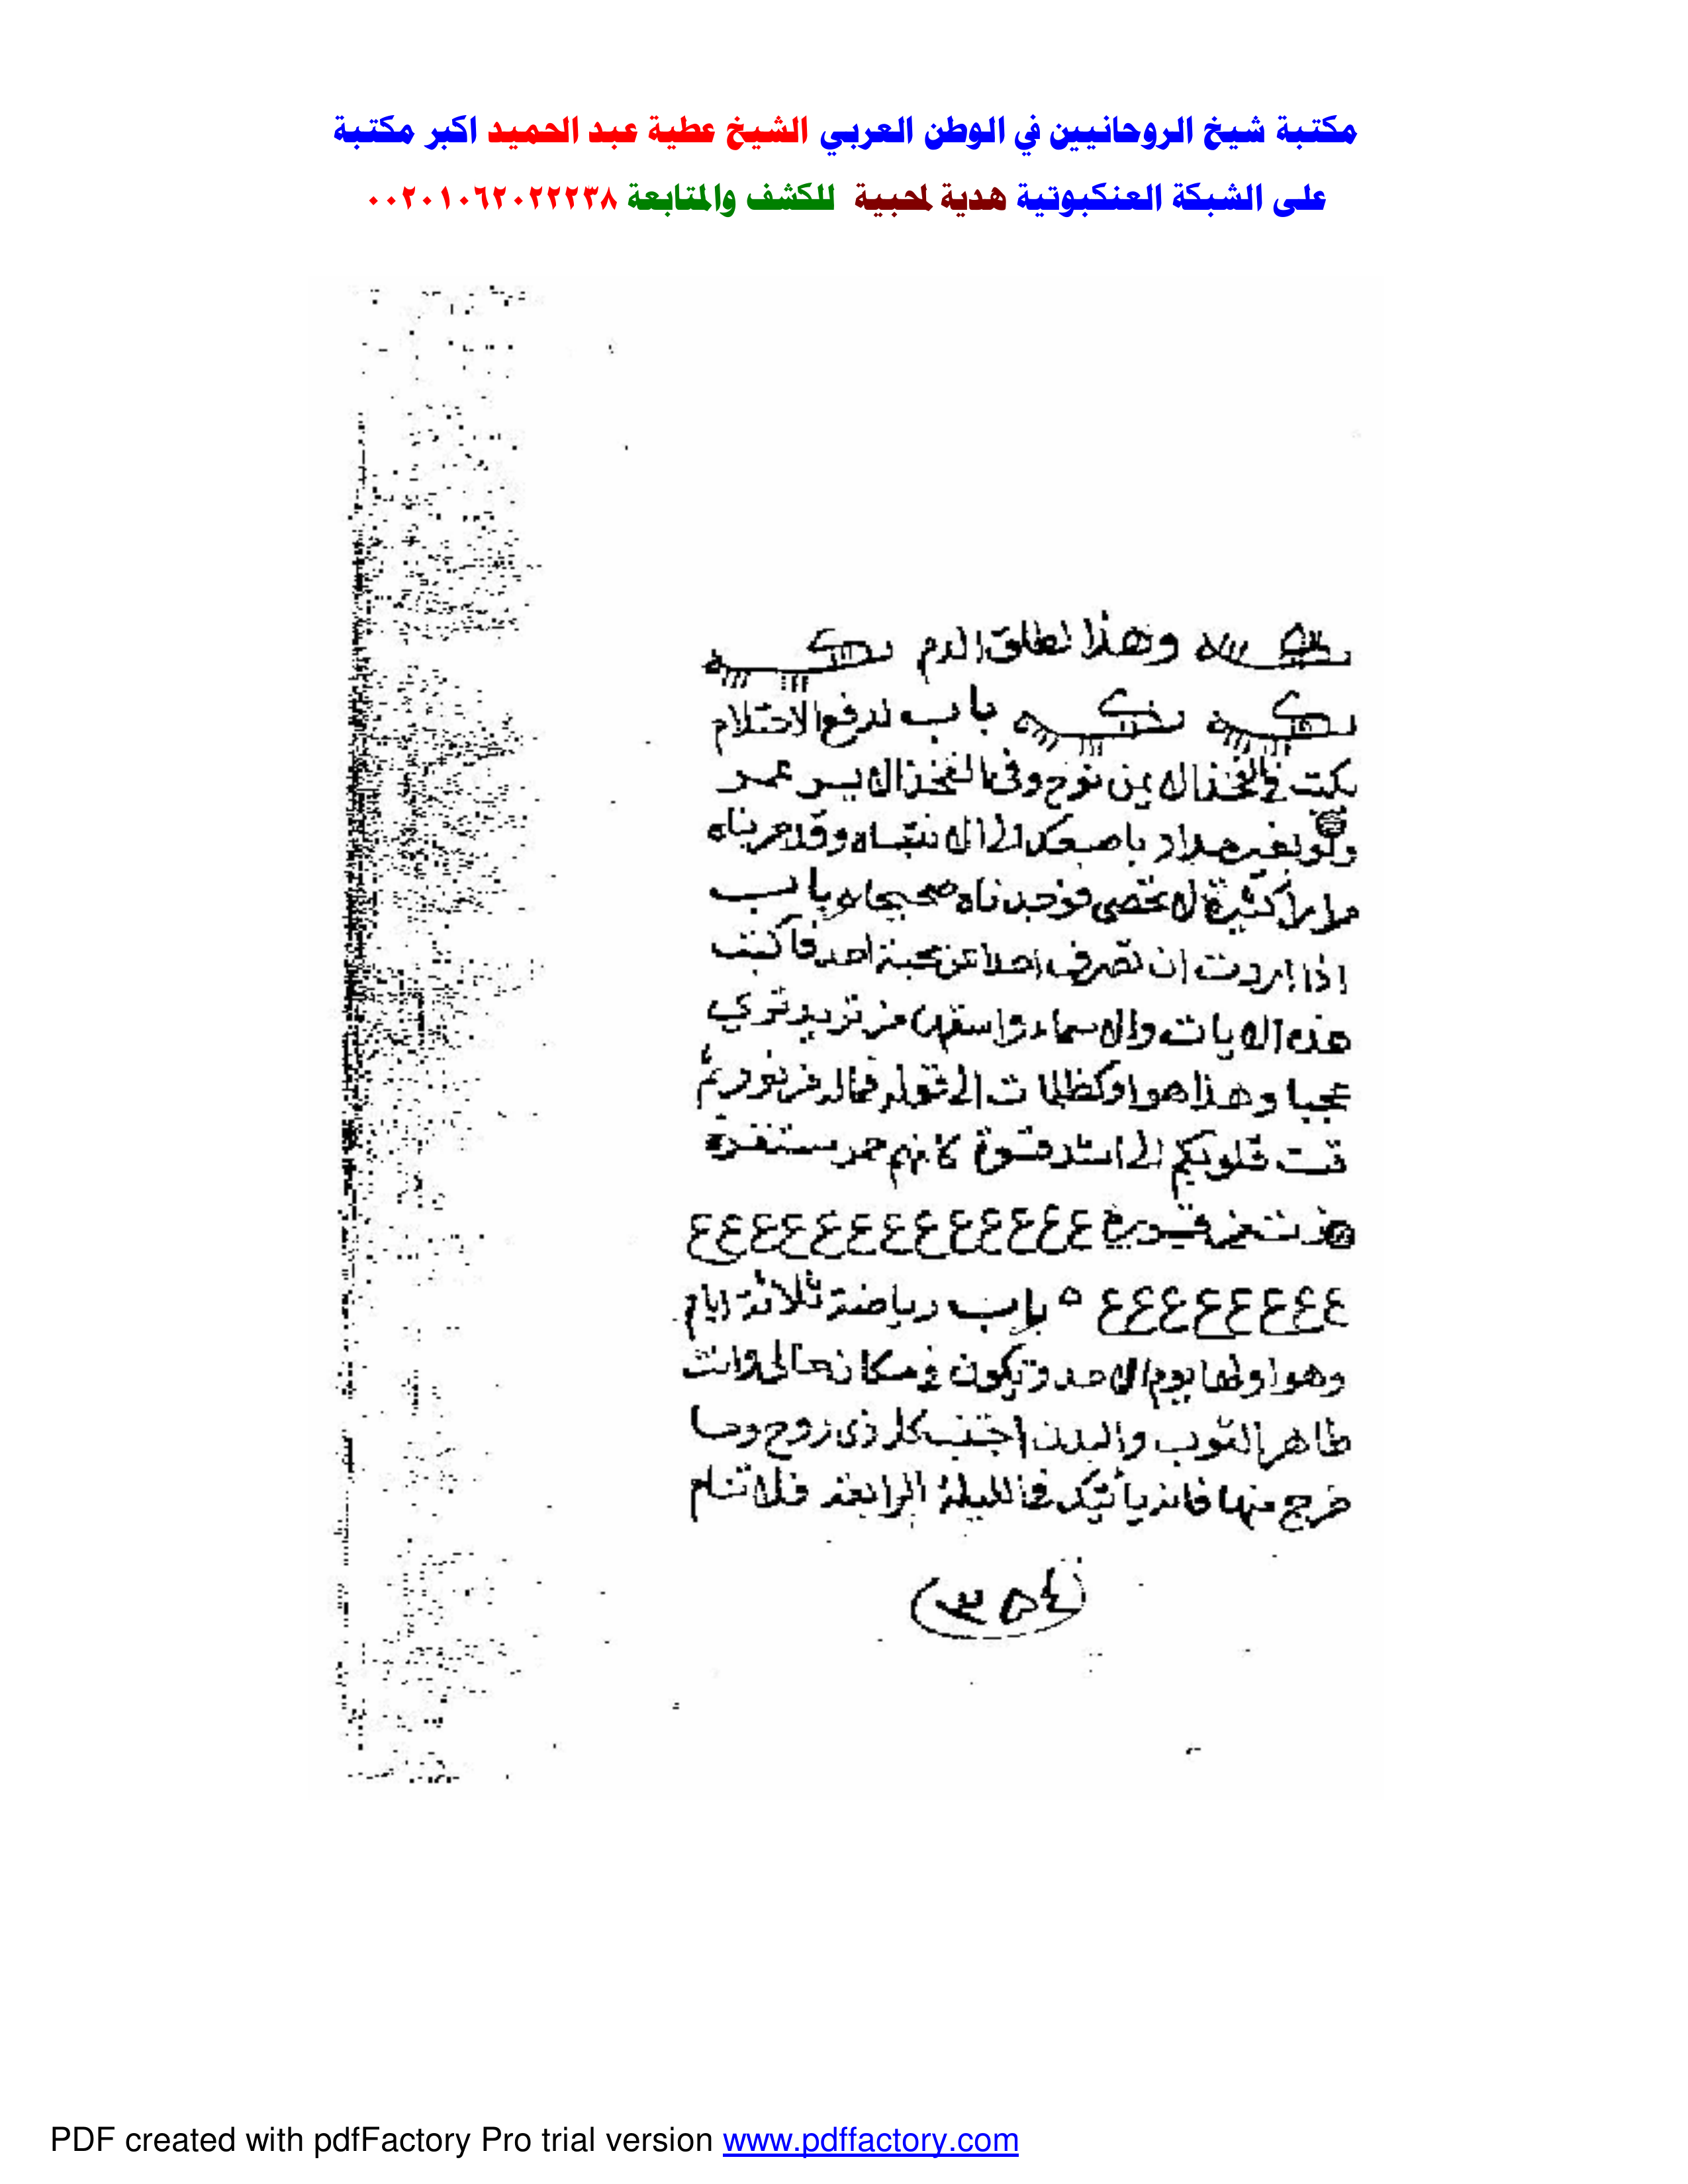 مكتبة شيخ الروحانيين في الوطن العربي الشيخ عطية عبد الحميد اكبر مكتبة
على الشبكة العنكبوتية هدية لمحبية للكشف والمتابعة ٠٠٢٠١٠٦٢٠٢٢٢٣٨
وهذا لطلق الدم
باب لدفع الاحتلام
يكتب في الفخذ الايمن نوح وفي الفخذ الايسر عمر
ولو بغير مداد باصبعك الى الانتباه وقد جربناه
مرارا كثيرة لا تحصى فوجدناه صحيحا باب
اذا اردت ان تصرف احدا عن محبة احد فاكتب
هذه الايات والاسماء واسقها من تريد ترى
عجبا وهذا هو اوكظلمات الى قوله فماله من نور ثم
قست قلوبكم الى اشد قسوة كانهم حمر مستنفرة
فرت من قسورة ع ع ع ع ع ع ع ع ع ع ع ع ع
ع ع ع ع ع ع ع ع ه باب رياضة ثلاثة ايام
وهو اولها يوم الاحد وتكون في مكان خالى وانت
طاهر الثوب والبدن اجتنب كل ذى روح وما
خرج منها فانه ياتيك في الليلة الرابعة فلا تنام
(٣٥٤)
PDF created with pdfFactory Pro trial version www.pdffactory.com